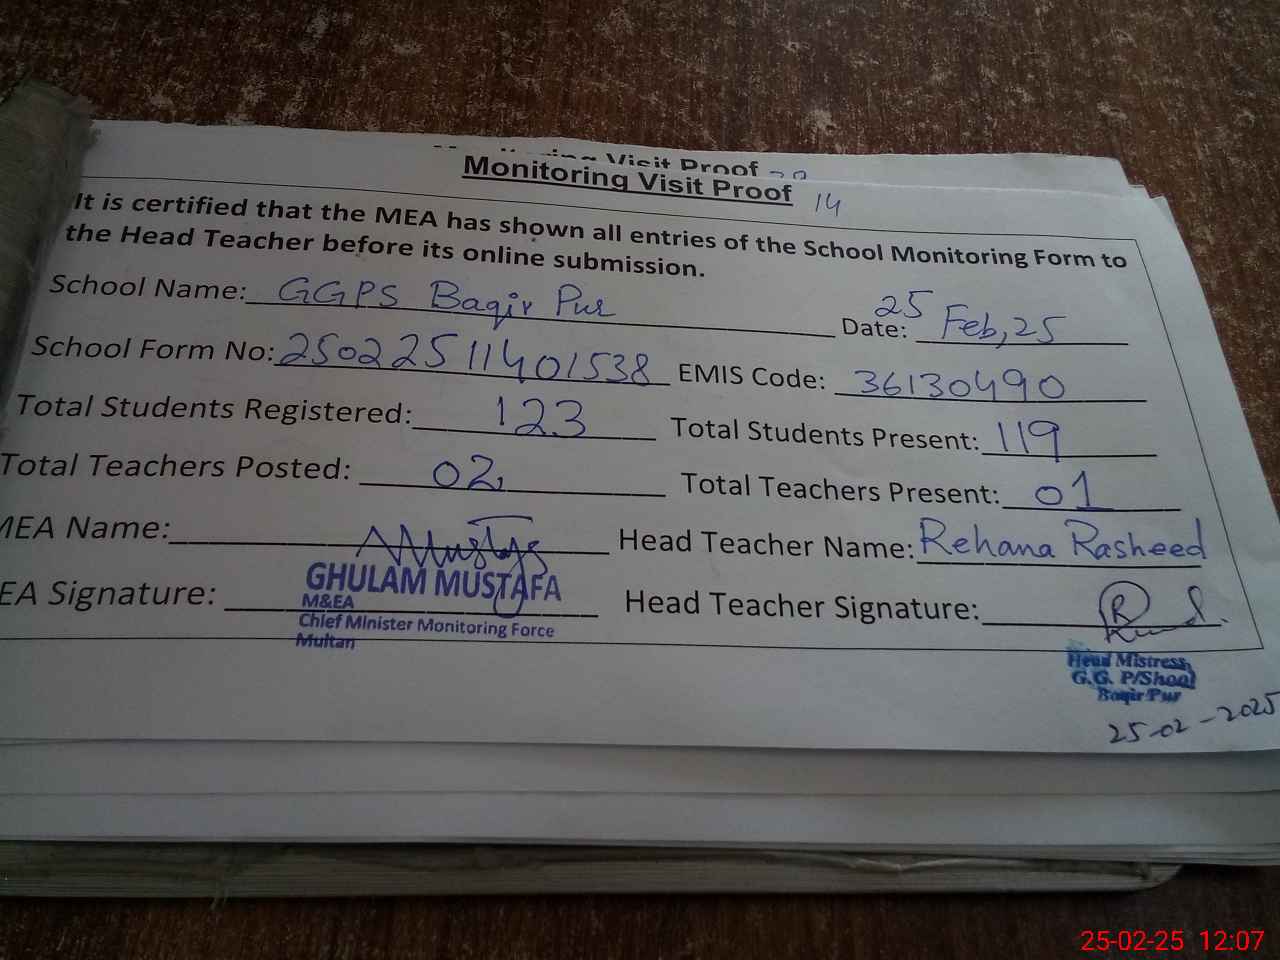 Monitoring Visit Proof
Monitoring Visit Proof 14
It is certified that the MEA has shown all entries of the School Monitoring Form to
the Head Teacher before its online submission.
School Name: GGPS Baqir Pur Date: 25 Feb, 25
School Form No: 25022511401538 EMIS Code: 36130490
Total Students Registered: 123 Total Students Present: 119
Total Teachers Posted: 02 Total Teachers Present: 01
MEA Name: Head Teacher Name: Rehana Rasheed
EA Signature: Head Teacher Signature:
GHULAM MUSTAFA
M&EA
Chief Minister Monitoring Force
Multan
Head Mistress
G.G. P/Shool
Baqir Pur
25-02-2025
25-02-25 12:07